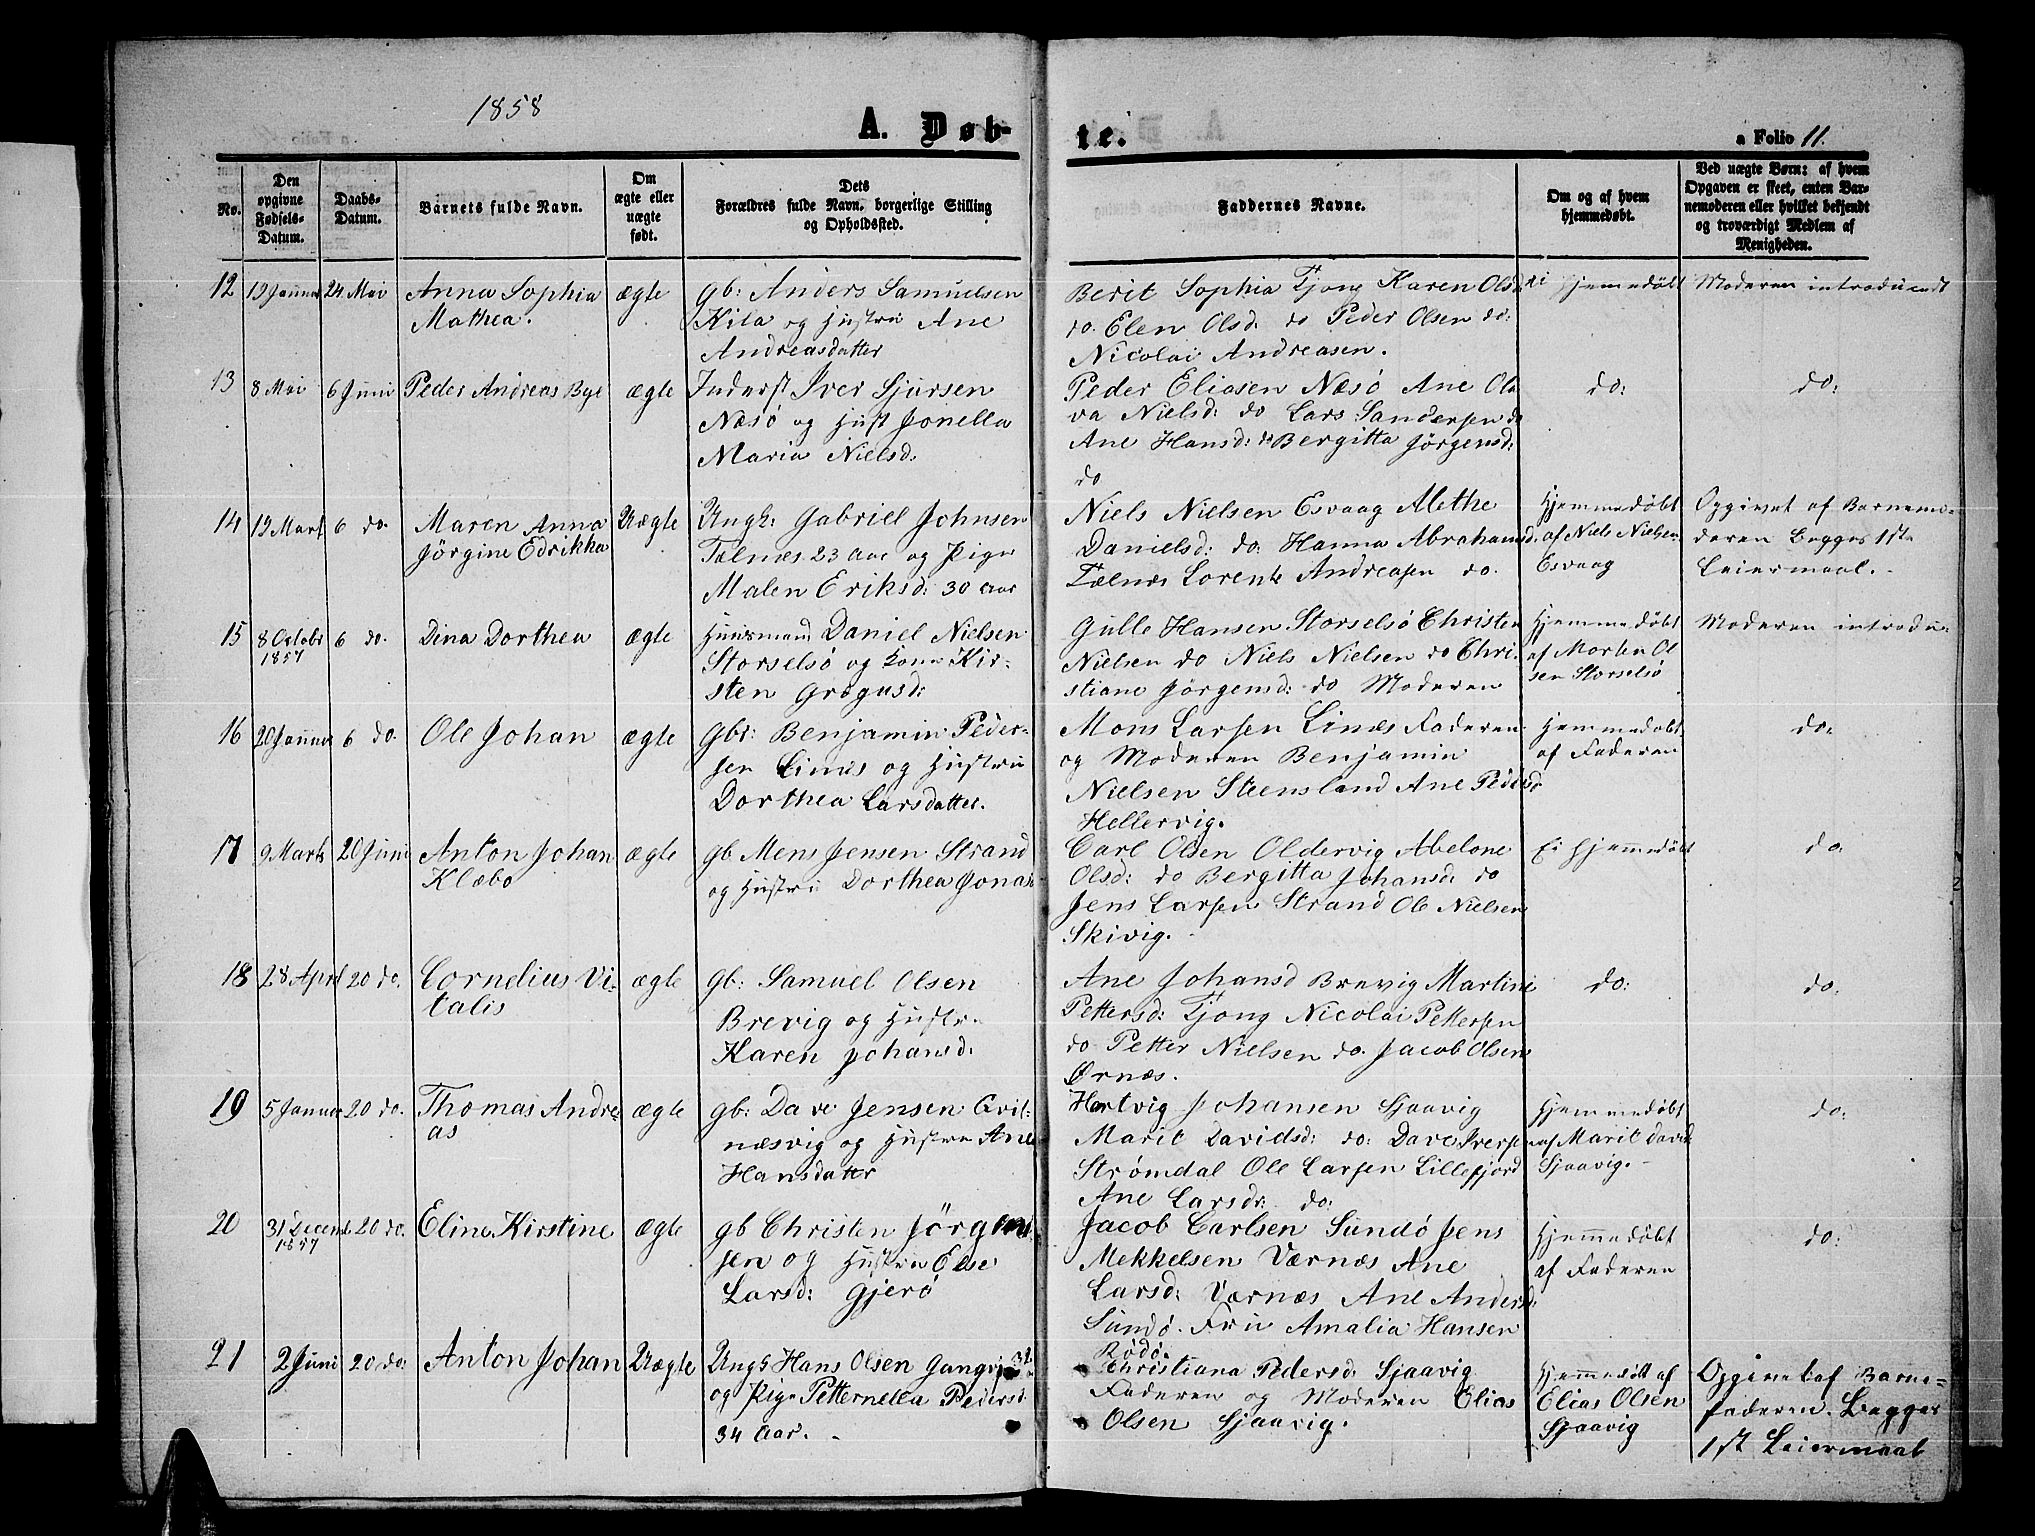 1858
A. Døb-
te.
a Folio 11.
No.
Den
opgivne
Fødsels-
Datum.
Daabs-
Datum.
Barnets fulde Navn.
Om
ægte eller
uægte
født.
Dets
Forældres fulde Navn, borgerlige Stilling
og Opholdssted.
Faddernes Navne.
Om og af hvem
hjemmedøbt.
Ved uægte Børn: af hvem
Opgaven er skeet, enten Bar-
nemoderen eller hvilket bekjendt
og troværdigt Medlem af
Menigheden.
12 19 Januar 24 Mai Anna Sophia ægte gb: Anders Samuelsen
Mathea. Kila og Hustru Ane
Andreasdatter
Berit Sophia Tjong Karen Olsd
do. Elen Olsd: do Peder Olsen do:
Nicolai Andreasen.
ei Hjemmedøbt
Moderen introduceret
13 8 Mai 6 Juni Peder Andreas Byl ægte Inderst Iver Sjursen
Næsø og Hust Jonella
Maria Nielsd:
Peder Eliasen Næsø Ane Ola
va Nielsd: do Lars Sandersen do
Ane Hansd: do Bergitta Jörgensd:
do
do:
do:
14 12 Mart 6 do. Maren Anna Uægte Ungk: Gabriel Johnsen
Jörgine Edrikka Tælnæs 23 aar og Pige
Malen Eriksd: 30 aar
Niels Nielsen Esvaag Alethe
Danielsd: do: Hanna Abrahamsd.
Tælnæs Lorents Andreasen do.
Hjemmedøbt
af Niels Nielsen
Esvaag
Opgivet af Barnemo-
deren Begges 1ste
Leiermaal.
15 8 October 6 do. Dina Dorthea ægte Huusmand Daniel Nielsen
1857 Storselsö og Kone Kir-
sten Grogusd:
Gulle Hansen Storselsö Christen
Nielsen do Niels Nielsen do Chri-
stiane Jörgensd: do Moderen
Hjemmedøbt
af Morten Ol
sen Storselsö
Moderen introdu-
16 20 Januar 6 do. Ole Johan ægte gbr: Benjamin Peder-
sen Linæs og Hustru
Dorthea Larsdatter.
Mons Larsen Linæs Faderen
og Moderen Benjamin
Nielsen Steensland Ane Pedersd
Hellervig.
Hjemmedøbt
af Faderen
do:
17 9 Marts 20 Juni Anton Johan ægte gb Mens Jensen Strand
Klæbo og Hustru Dorthea Jonas
Carl Olsen Oldervig Abelone
Olsd: do Bergitta Johansd: do
Jens Larsen Strand Ole Nielsen
Skivig.
Ei Hjemmedøbt
do:
18 28 April 20 do. Cornelius Vi- ægte gb: Samuel Olsen
talis Brevig og Hustru
Karen Johansd:
Ane Johansd Brevig Martine
Pettersd: Tjong Nicolai Pettersen
do Petter Nielsen do. Jacob Olsen
Ørnæs.
do:
do:
19 5 Januar 20 do. Thomas Andre ægte gb: Dave Jensen Qvit-
as næsvig og Hustru Ane
Hansdatter
Hartvig Johansen Sjaavig
Marit Davidsd: do: Dave Iversen
Strømdal Ole Larsen Lillefjord
Ane Larsdr: do:
Hjemmedøbt
af Marit David
Sjaavig.
do:
20 31 Decemb. 20 do. Eline Kirstine ægte gb Christen Jörgen
1857 sen og Hustru Else
Larsd: Gjerö
Jacob Carlsen Sundö Jens
Mekkelsen Værnæs Ane
Larsd: Værnæs Ane Andersd:
Sundö. Fru Amalia Hansen
Rödö.
Hjemmedøbt
af Faderen
do:
21 2 Juni 20 do: Anton Johan Uægte Ungk Hans Olsen Gangvig 32
og Pige Petternella Pedersd
34 aar.
Christiana Pedersd: Sjaavig
Faderen og Moderen Elias
Olsen Sjaavig.
Hjemmedøbt af
Elias Olsen
Sjaavig
Opgivet af Barne-
faderen. Begges
1st Leiermaal